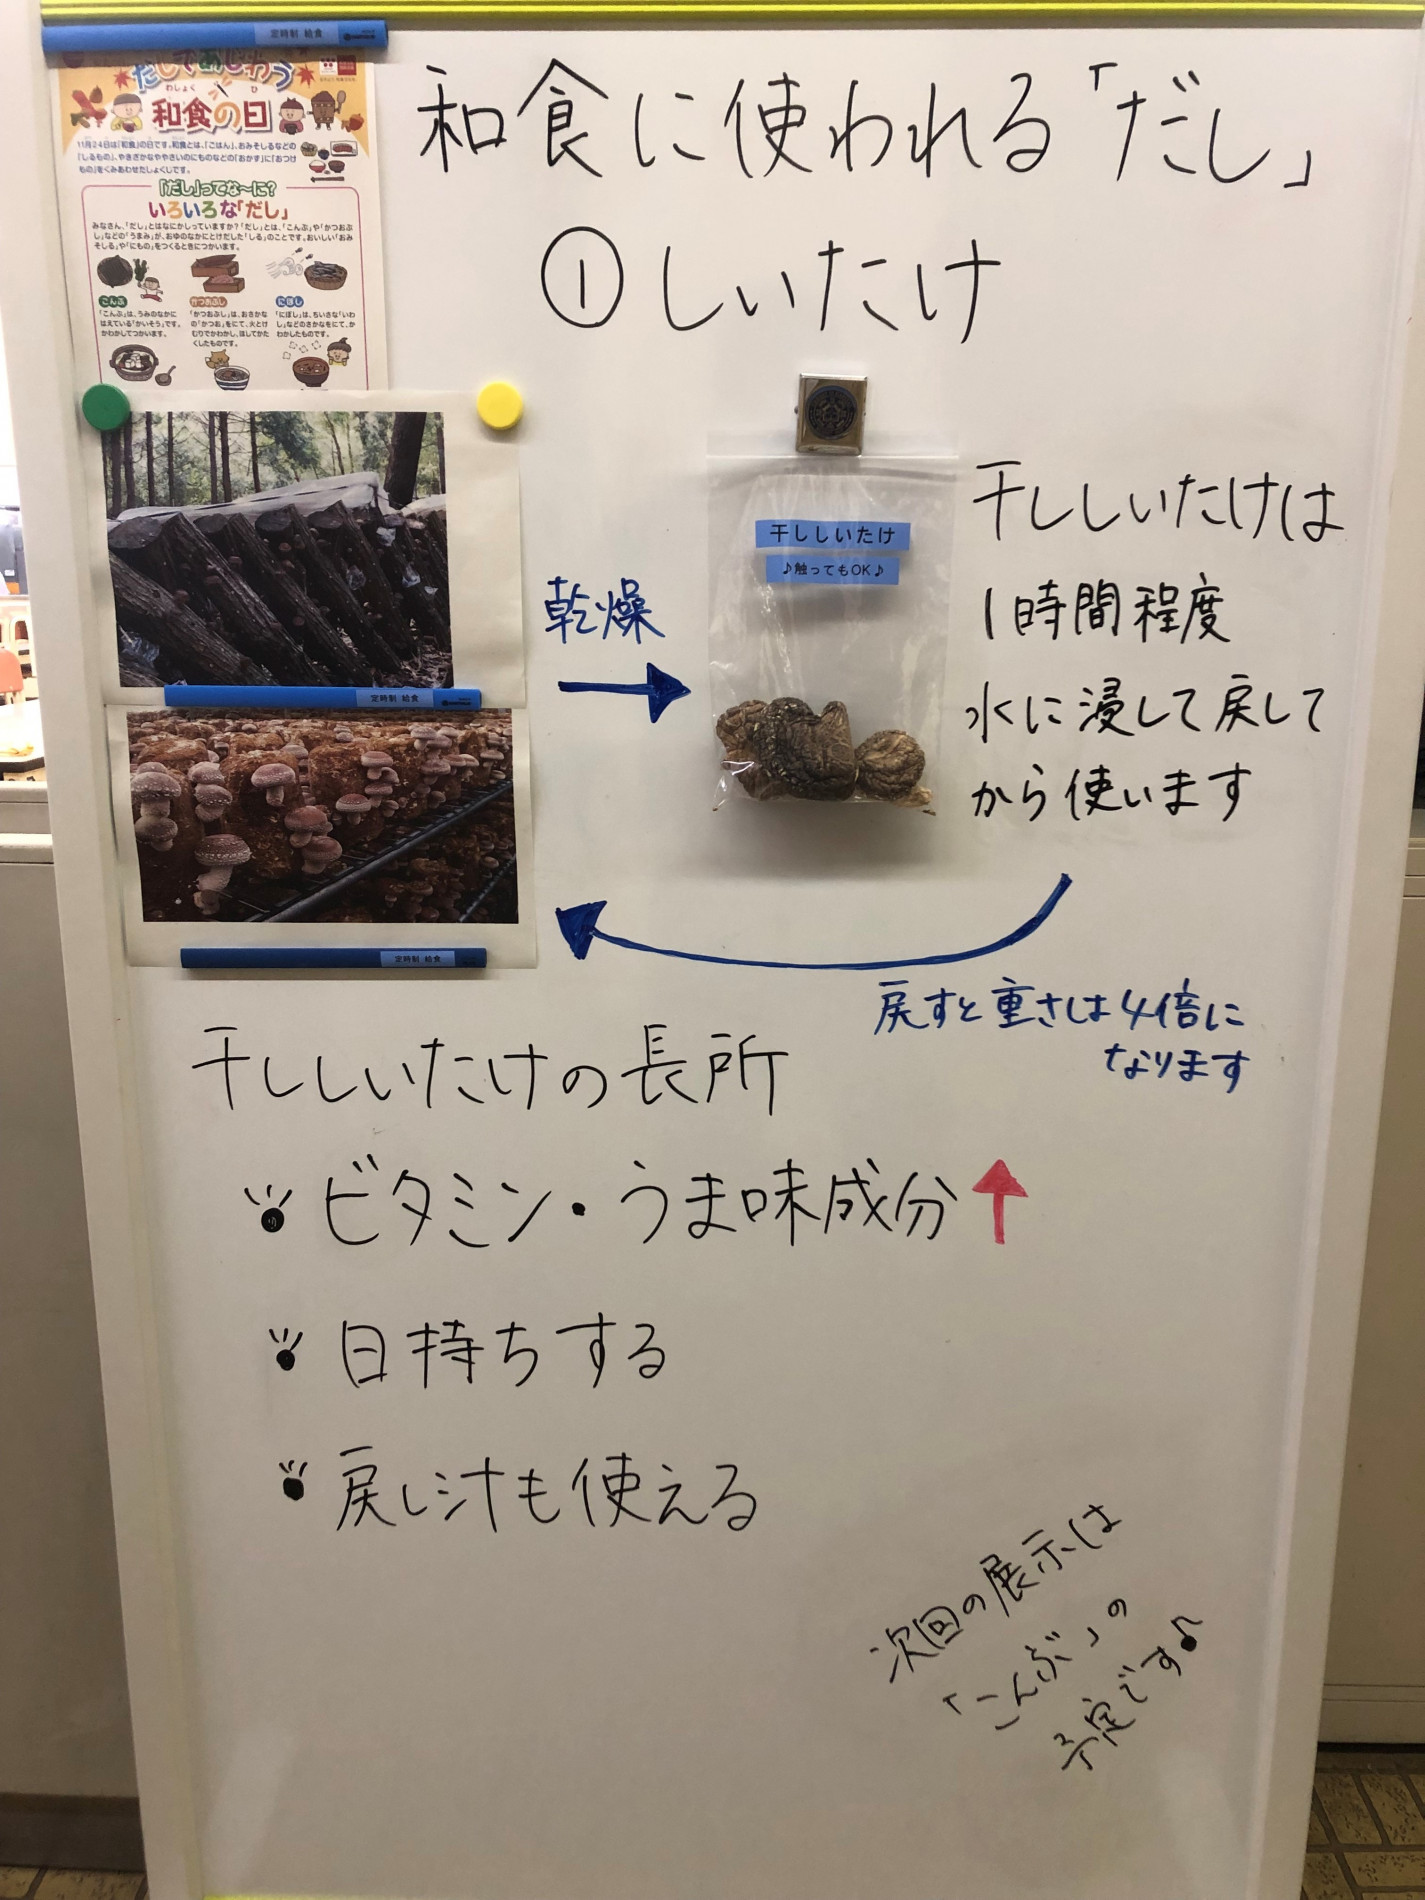 定時制 給食
だしであじわう
わしょく ひ
和食の日
11月24日は「和食」の日です。和食とは、「ごはん」、おみそしるなどの
「しるもの」、やきざかなややさいのにものなどの「おかず」に「おつけ
もの」をくみあわせたしょくじです。
「だし」ってな〜に?
いろいろな「だし」
みなさん、「だし」とはなにかしっていますか?「だし」とは、「こんぶ」や「かつおぶ
し」などの「うまみ」が、おゆのなかにとけだした「しる」のことです。おいしい「おみ
そしる」や「にもの」をつくるときにつかいます。
こんぶ
「こんぶ」は、うみのなかに
はえている「かいそう」です。
かわかしてつかいます。
かつおぶし
「かつおぶし」は、おさかな
の「かつお」をにて、火とけ
むりでかわかし、ほしてかた
くしたものです。
にぼし
「にぼし」は、ちいさな「いわ
し」などのさかなをにて、か
わかしたものです。
和食に使われる「だし」
①しいたけ
乾燥
干ししいたけ
♪触ってもOK♪
干ししいたけは
1時間程度
水に浸して戻して
から使います
定時制 給食
定時制 給食
戻すと重さは4倍に
なります
干ししいたけの長所
ビタミン・うま味成分↑
日持ちする
戻し汁も使える
次回の展示は
「こんぶ」の
予定です♪